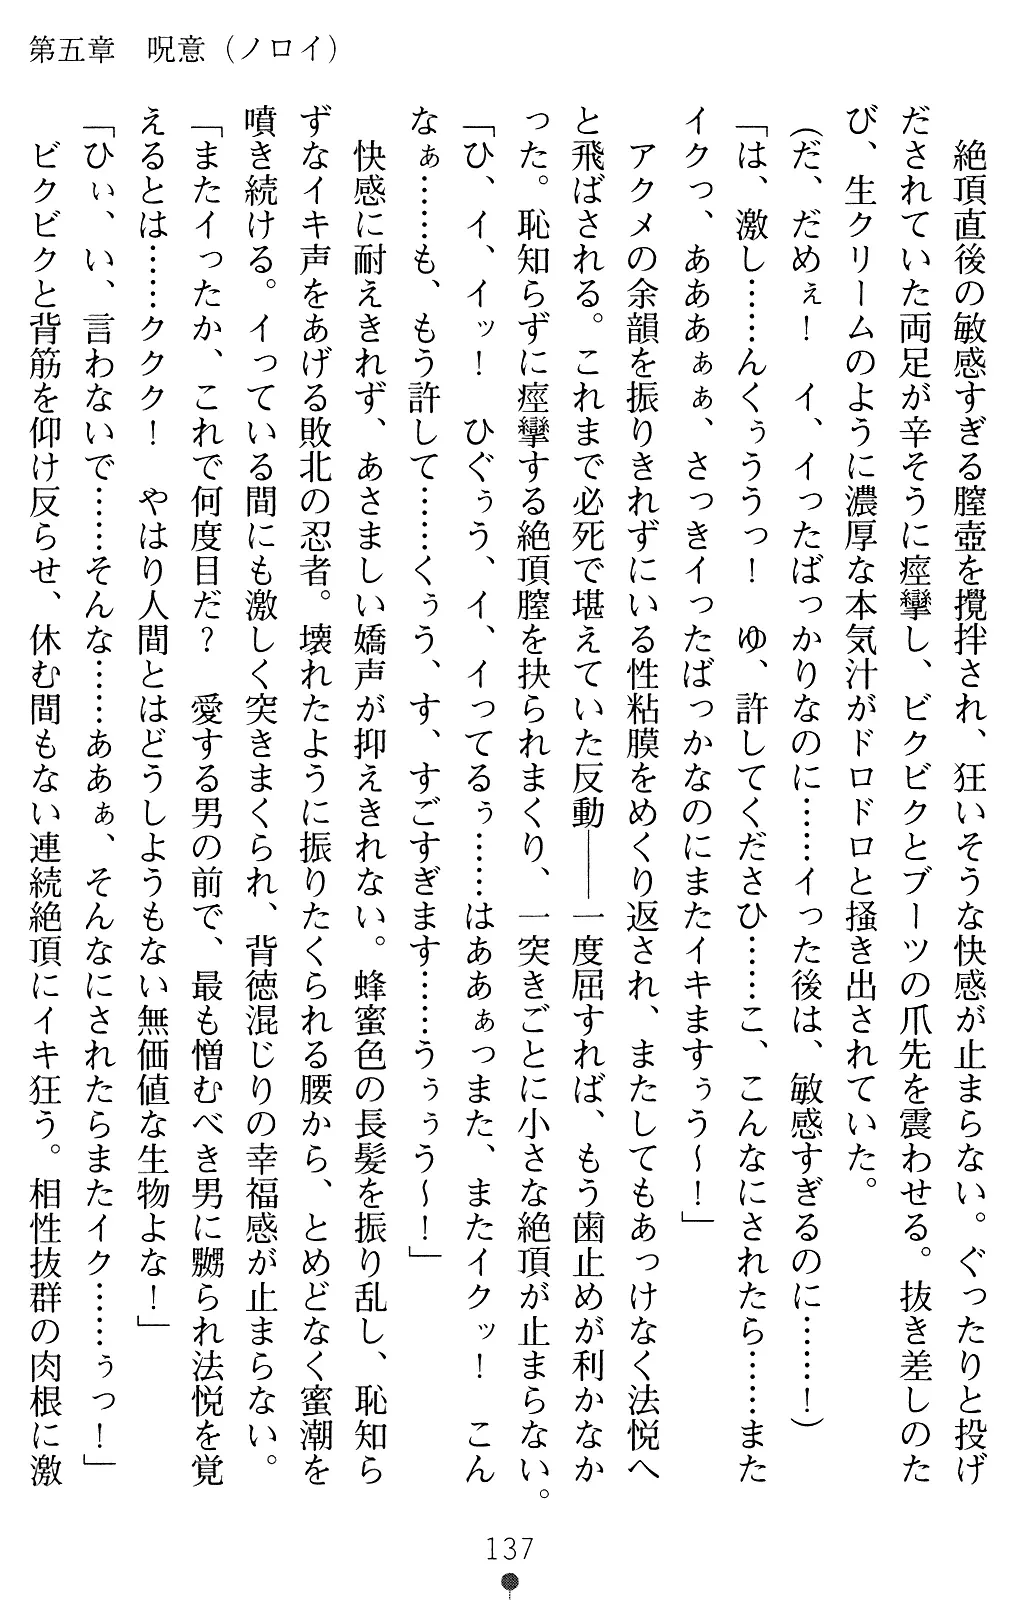 第五章　呪意（ノロイ）
　絶頂直後の敏感すぎる膣壺を攪拌され、狂いそうな快感が止まらない。ぐったりと投げ
だされていた両足が辛そうに痙攣し、ビクビクとブーツの爪先を震わせる。抜き差しのた
び、生クリームのように濃厚な本気汁がドロドロと掻き出されていた。
（だ、だめぇ！　イ、イったばっかりなのに……イった後は、敏感すぎるのに……！）
「は、激し……んくぅううっ！　ゆ、許してくださひ……こ、こんなにされたら……また
イクっ、あああぁぁ、さっきイったばっかなのにまたイキますぅう～！」
　アクメの余韻を振りきれずにいる性粘膜をめくり返され、またしてもあっけなく法悦へ
と飛ばされる。これまで必死で堪えていた反動――一度屈すれば、もう歯止めが利かなか
った。恥知らずに痙攣する絶頂膣を抉られまくり、一突きごとに小さな絶頂が止まらない。
「ひ、イ、イッ！　ひぐぅう、イ、イってるぅ……はああぁっまた、またイクッ！　こん
なぁ……も、もう許して……くぅう、す、すごすぎます……うぅぅう～！」
　快感に耐えきれず、あさましい嬌声が抑えきれない。蜂蜜色の長髪を振り乱し、恥知ら
ずなイキ声をあげる敗北の忍者。壊れたように振りたくられる腰から、とめどなく蜜潮を
噴き続ける。イっている間にも激しく突きまくられ、背徳混じりの幸福感が止まらない。
「またイったか、これで何度目だ？　愛する男の前で、最も憎むべき男に嬲られ法悦を覚
えるとは……ククク！　やはり人間とはどうしようもない無価値な生物よな！」
「ひぃ、い、言わないで……そんな……ああぁ、そんなにされたらまたイク……ぅっ！」
　ビクビクと背筋を仰け反らせ、休む間もない連続絶頂にイキ狂う。相性抜群の肉根に激
137